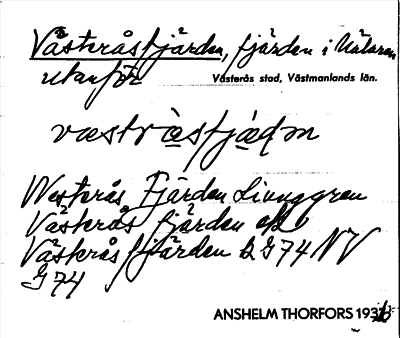 Västeråsfjärden, fjärden i Mälaren
utanför Västerås stad, Västmanlands län.
væstràsfjædṇ
Westerås Fjärden Liunggren
Västerås fjärden ek
Västerås fjärden L G74 NV
G74
ANSHELM THORFORS 1937